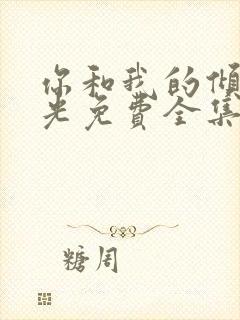 你和我的倾
光免费全集
糖周